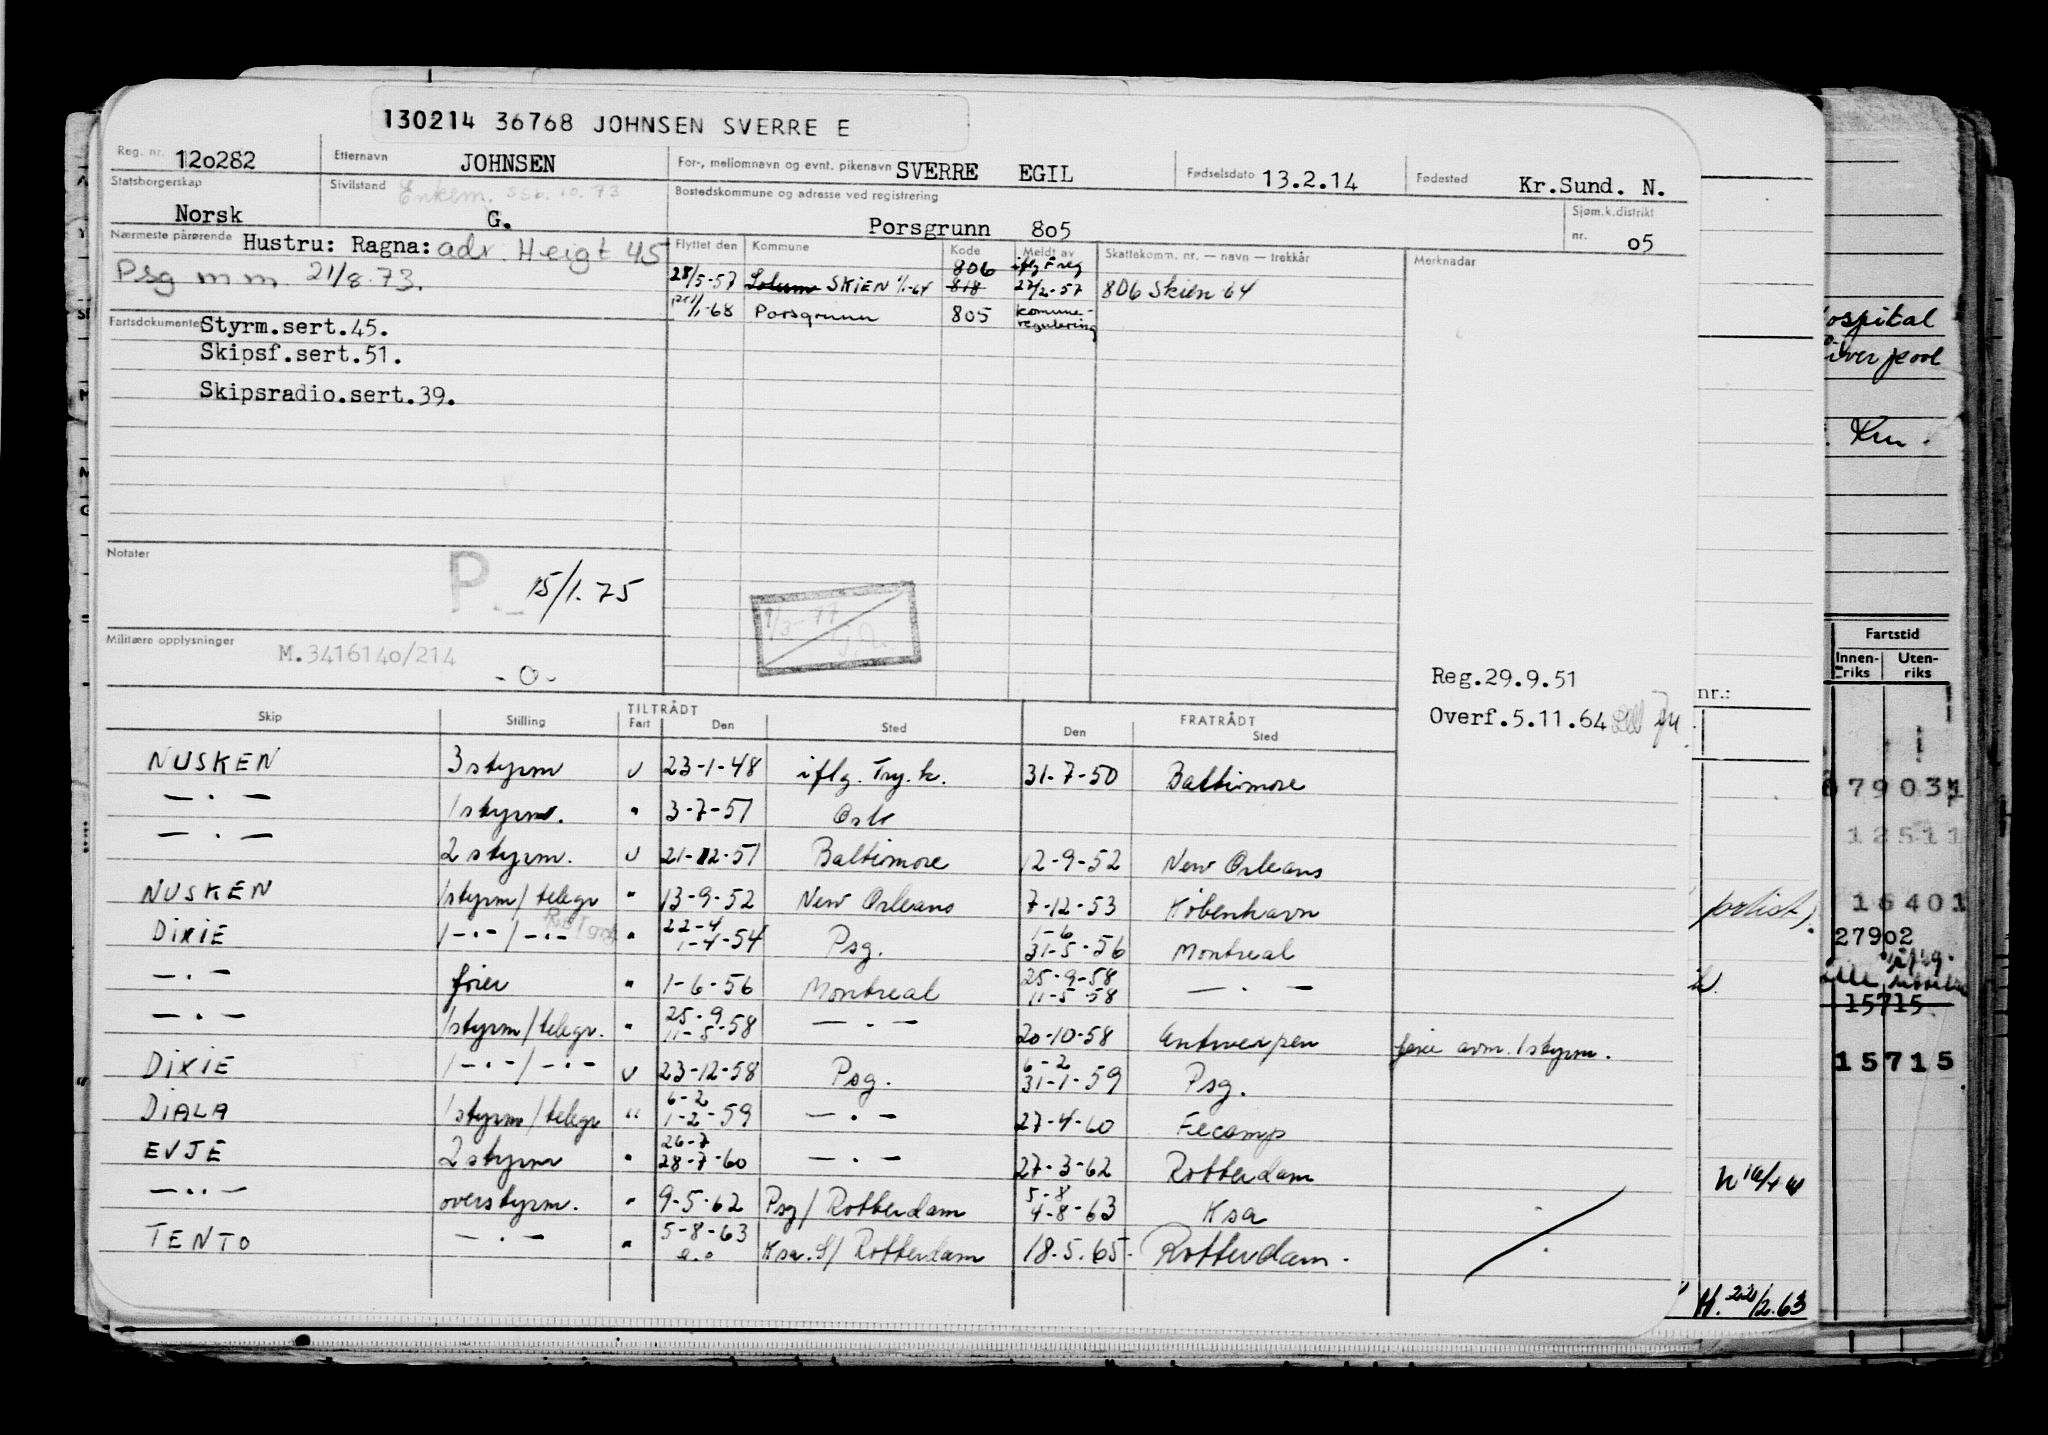 130214 36768 JOHNSEN SVERRE E
Reg. nr. 120282 Etternavn JOHNSEN For-, mellomnavn og evnt. pikenavn SVERRE EGIL Fødselsdato 13.2.14 Fødested Kr.Sund. N.
Statsborgerskap Norsk Sivilstand Enkem. Seb. 10.73 G. Bostedskommune og adresse ved registrering Porsgrunn 805 Sjøm.k.distrikt nr. 05
Nærmeste pårørende Hustru: Ragna: adr. Heigt 45
Psg m m 21/8.73.
Flyttet den Kommune Kode Meldt av Skattekomm. nr. — navn — trekkår Merknader
28/5-57 Solum SKIEN 1/1-64 806 818 iflg F reg 27/2-57 806 Skien 64
1/1-68 Porsgrunn 805 komune-regulering
Fartsdokumenter Styrm.sert.45.
Skipsf.sert.51.
Skipsradio.sert.39.
Notater
P. 15/1.75
9/3-77
Militære opplysninger M.3416140/214
-0-
Reg.29.9.51
Overf.5.11.64
TILTRÅDT FRATRÅDT
Skip Stilling Fart Den Sted Den Sted
NUSKEN 3 styrm U 23-1-48 iflg. Try.k. 31-7-50 Baltimore
— · — 1 styrm. " 3-7-51 Oslo
— · — 2 styrm. U 21-12-51 Baltimore 12-9-52 New Orleans
NUSKEN 1 styrm/telegr " 13-9-52 New Orleans 7-12-53 København
DIXIE 1 — · — / — · — " 22-4 1-4-54 Psg. 1-6 31-5-56 Montreal
— · — fører " 1-6-56 Montreal 25-9-58 11-5-58 — · —
— · — 1 styrm/telegr. " 25-9 11-5-58 — · — 20-10-58 Antwerpen ferie avm. 1 styrm.
DIXIE 1 — · — / — · — U 23-12-58 Psg. 6-2 31-1-59 Psg.
DIALA 1 styrm/telegr " 6-2 1-2-59 — · — 27-4-60 Fecamp
EVJE 2 styrm " 26-7 28-7-60 — · — 27-3-62 Rotterdam
— · · — overstyrm. " 9-5-62 Psg/Rotterdam 5-8 4-8-63 Ksa
TENTO — · — " 5-8-63 a.o Ksa. S/Rotterdam 18.5.65. Rotterdam.
nr.:
H. 22/2.63
ospital
iverpool
Kru.
Fartstid
Innen-riks Uten-riks
79031
12511
16401
27902
15715
15715